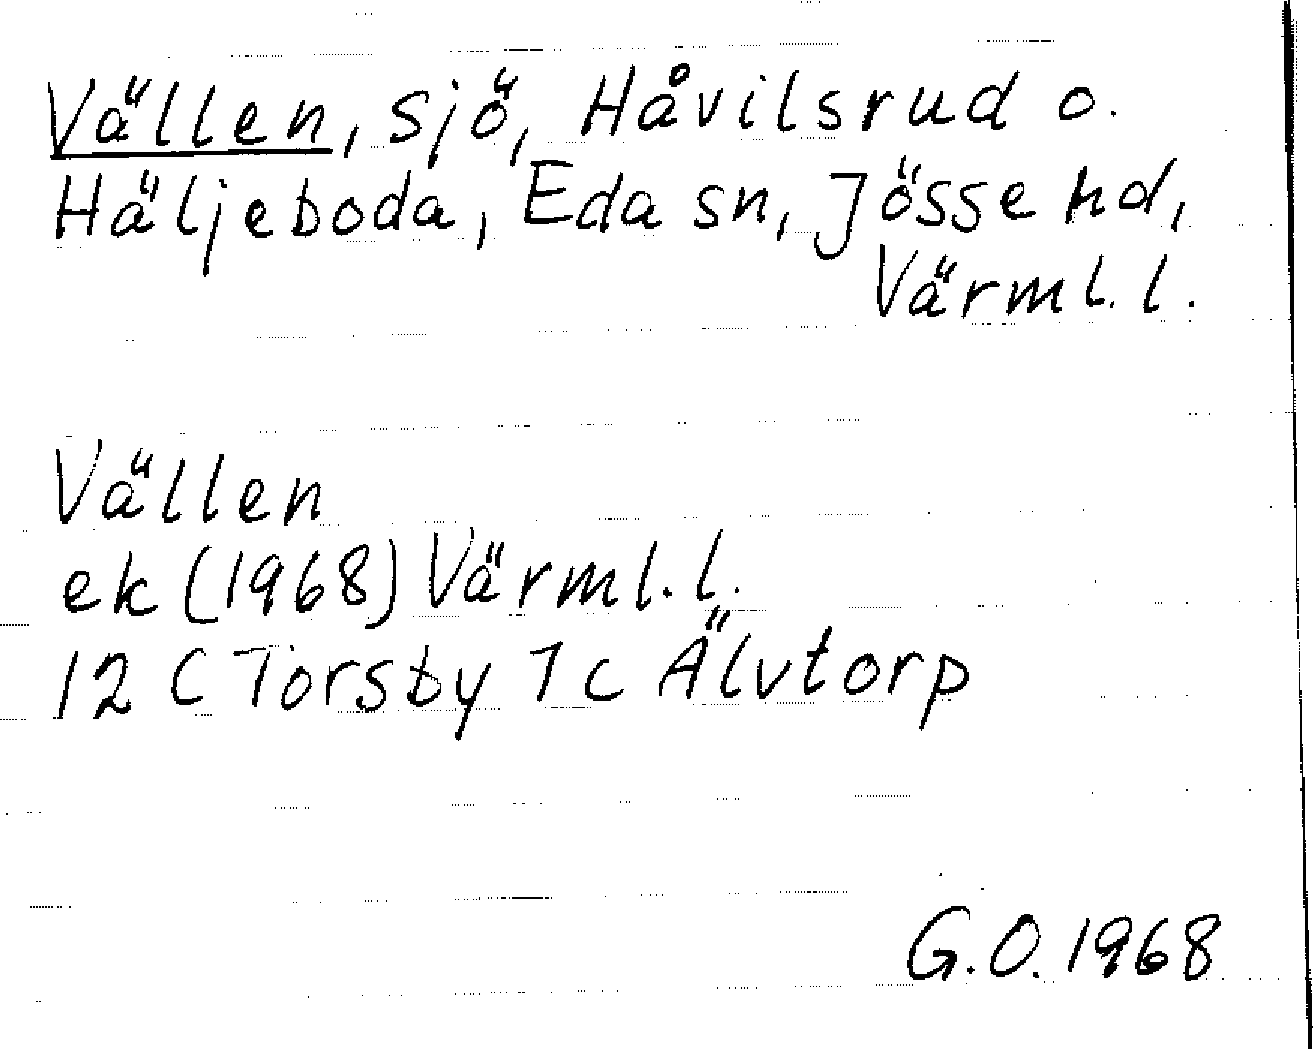 Vällen, sjö, Håvilsrud o.
Häljeboda, Eda sn, Jösse hd,
Värml. l.
Vällen
ek (1968) Värml. l.
12 C Torsby 1 c Älvtorp
G.O. 1968